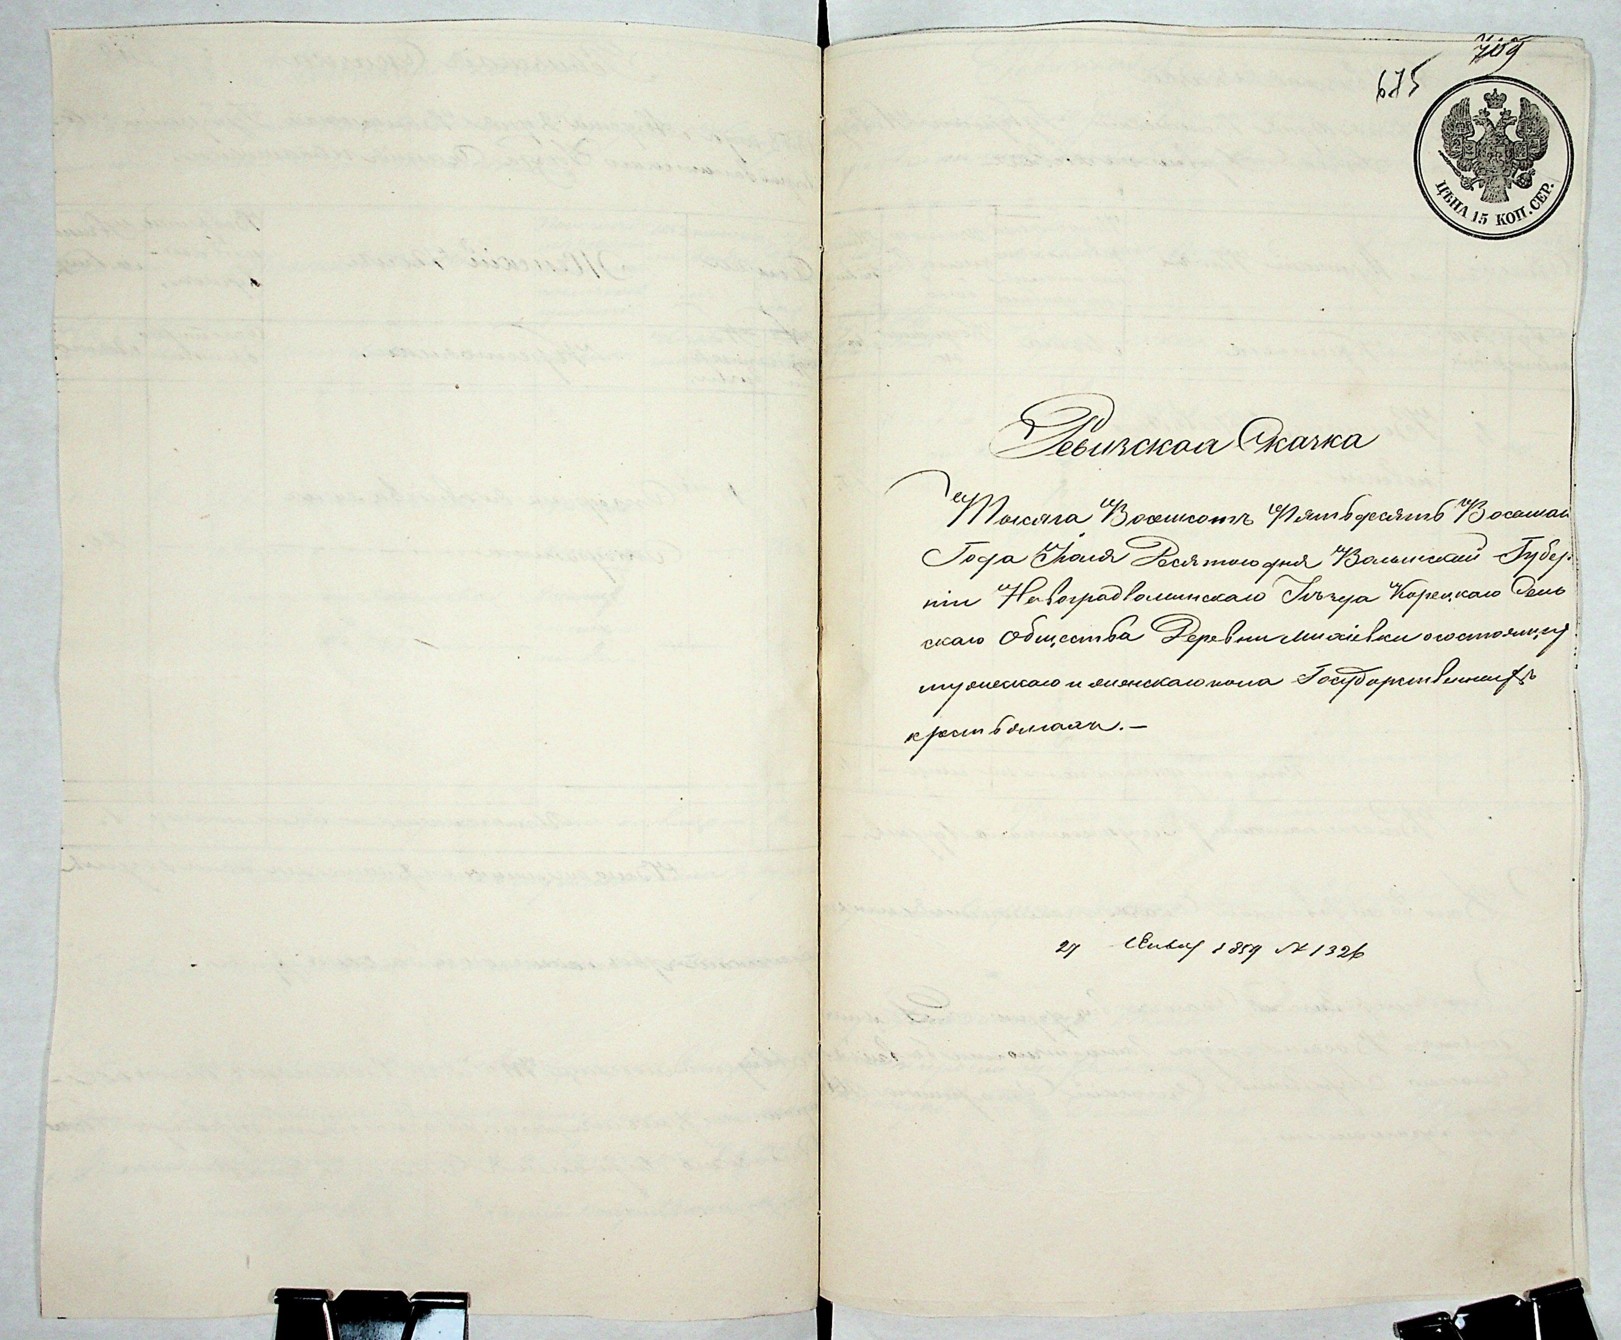 709
675
ЦѢНА 15 КОП. СЕР.
Ревизская Сказка
Тысяча Восемсотъ Пятьдесятъ Восмаго
Года Іюля Десятого дня Волынской Губер
ніи Новоградволынскаго Уѣзда Корецкаго Сель
скаго Общества Деревни Михіевки о состоящих
мужескаго и женскаго пола Государственныхъ
крестьянахъ.—
27 1859 № 1326